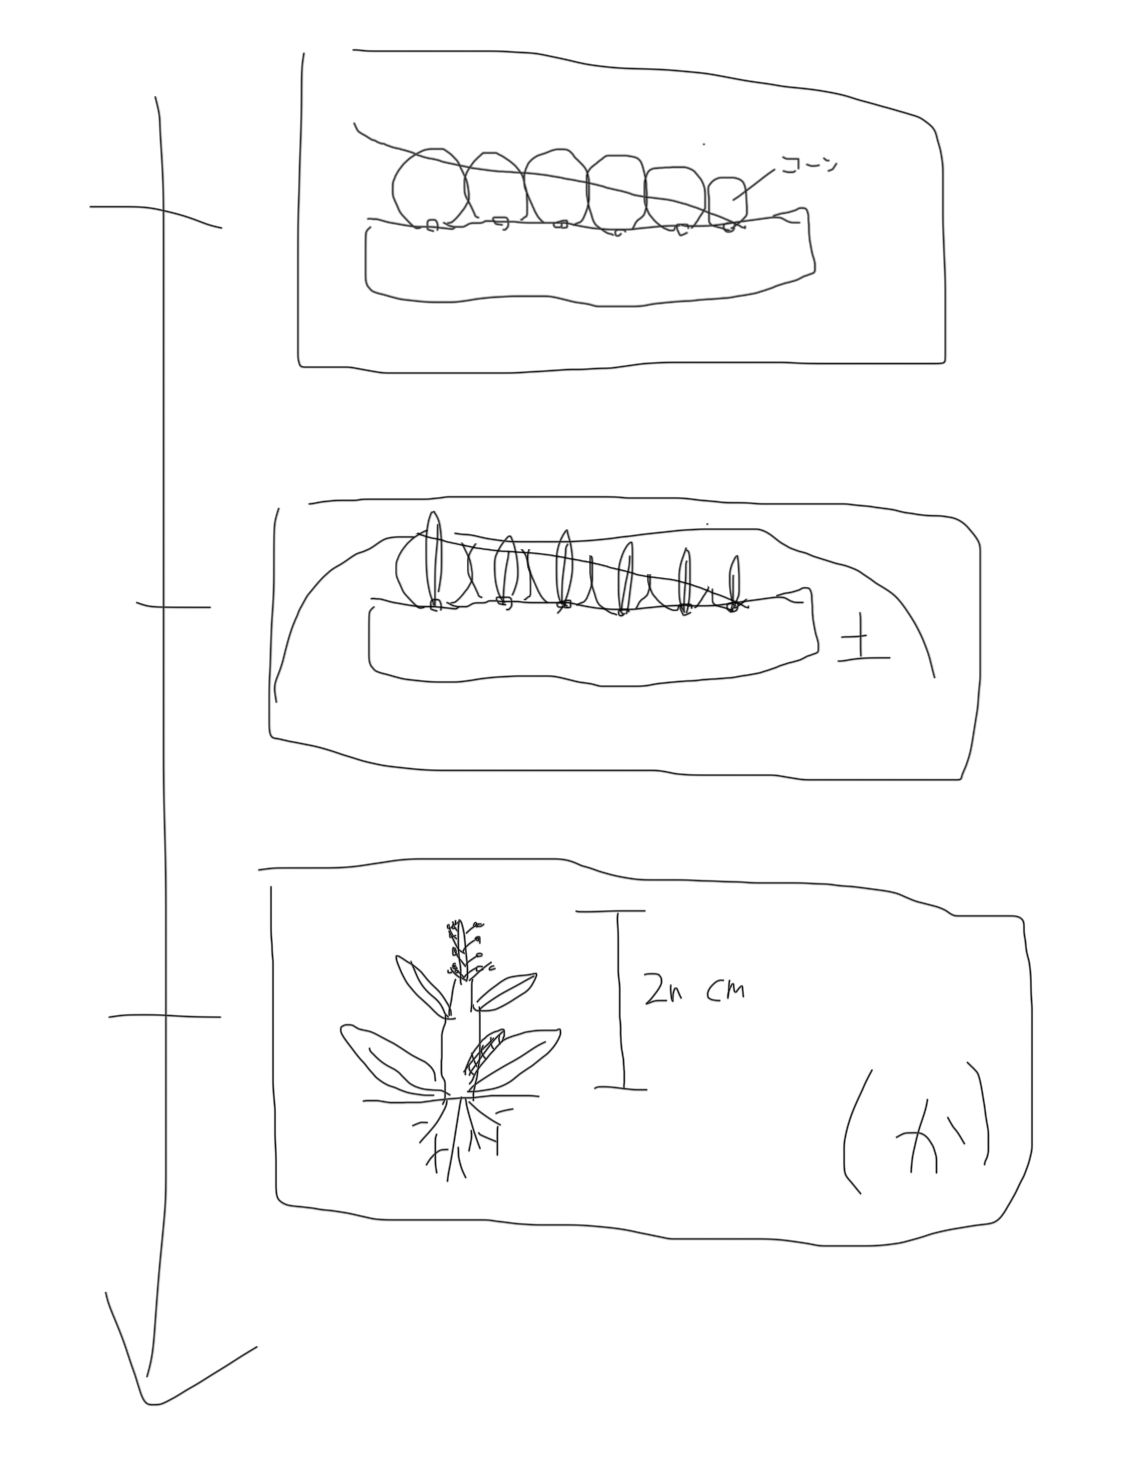 コーン
土
2n cm